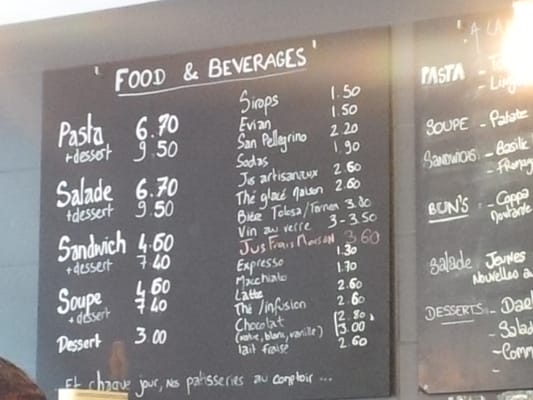 ' FOOD & BEVERAGES '
Pasta 6.70
+ dessert 9.50
Salade 6.70
+ dessert 9.50
Sandwich 4.60
+ dessert 7.40
Soupe 4.60
+ dessert 7.40
Dessert 3.00
Sirops 1.50
Evian 1.50
San Pellegrino 2.20
Sodas 1.90
Jus artisanaux 2.60
Thé glacé maison 2.60
Bière 3.80
Vin au verre 3-3.50
Jus Frais Maison 3.60
Expresso 1.30
Macchiato 1.70
Latte 2.60
Thé/infusion 2.60
Chocolat 2.80
(noir, blanc, vanille) 3.00
lait fraise 2.60
Et chaque jour, nos patisseries au comptoir ...
PASTA
SOUPE - Patate
SANDWICHS - Basilic
- Fromag
BUN'S - Coppa
Salade Jeunes
Nouvelles
DESSERTS -
- Salad
- Comm